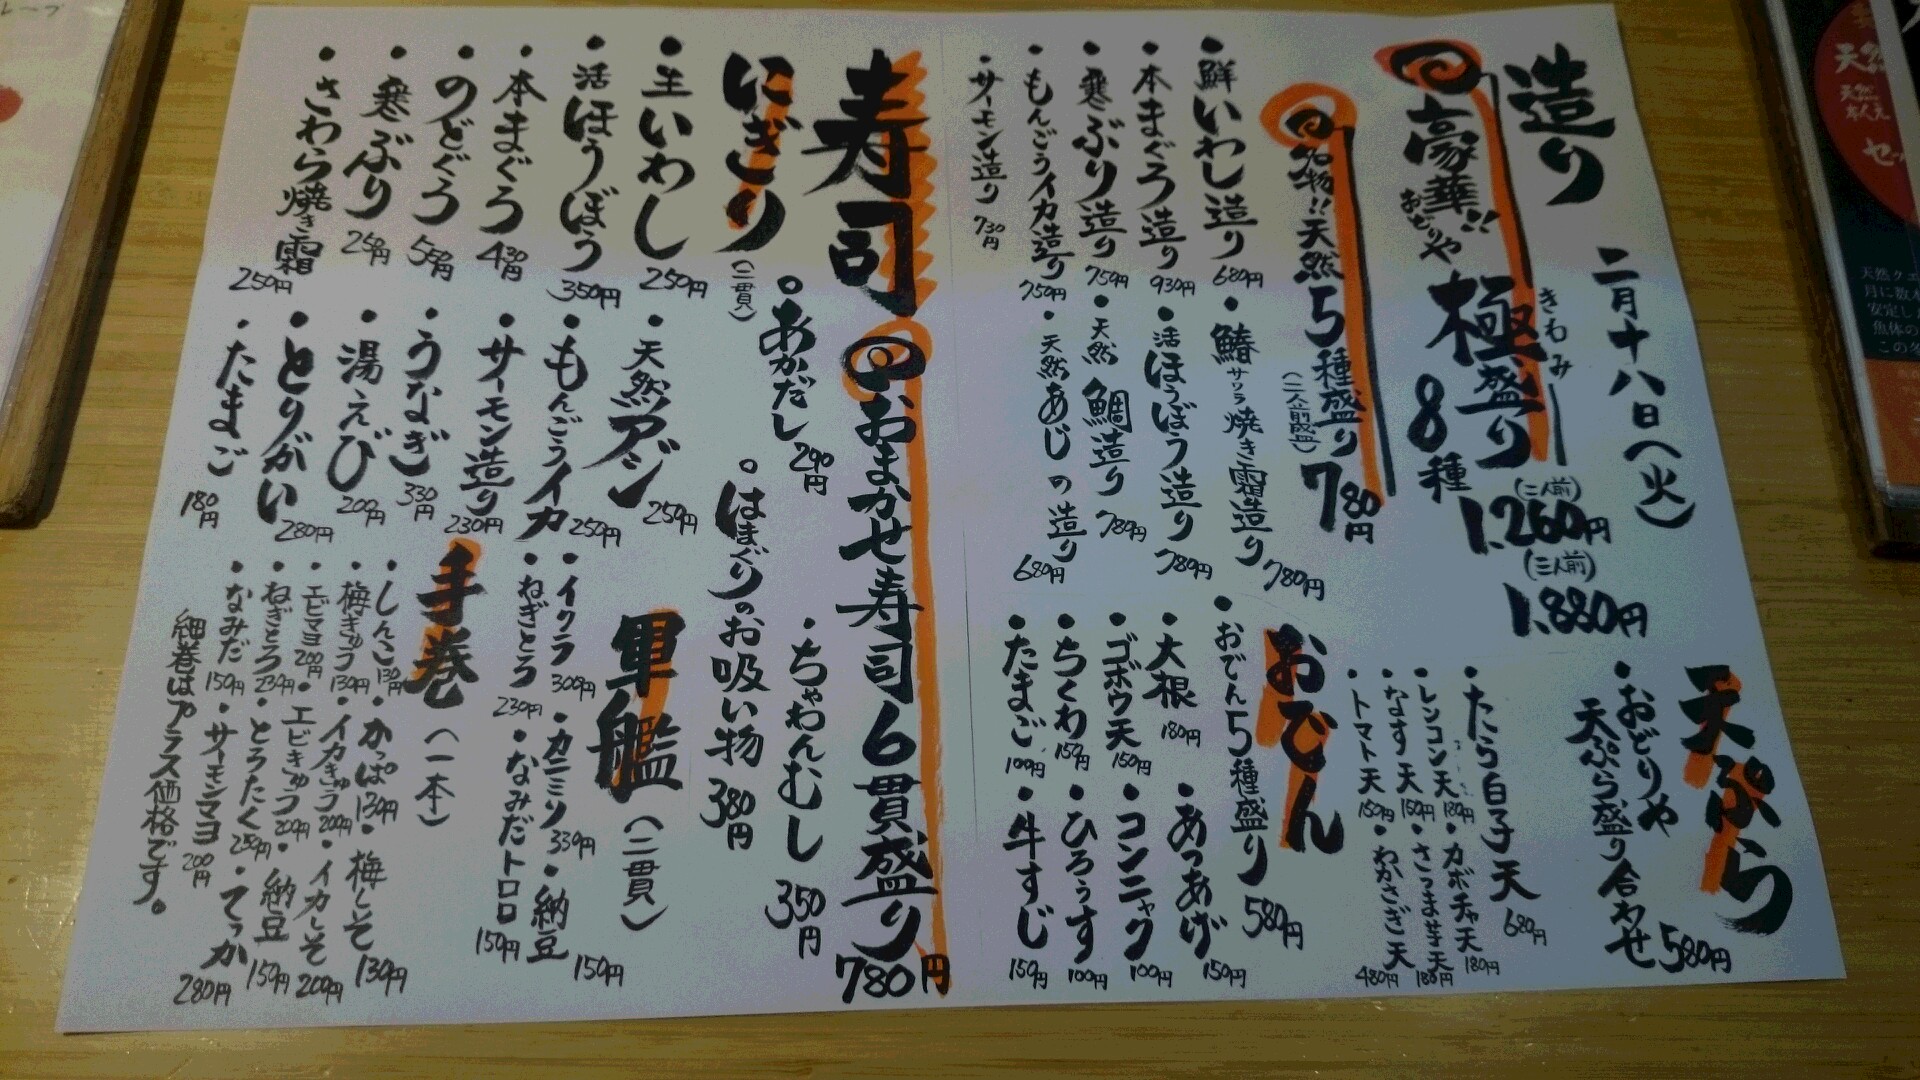 二月十八日(火)
造り
豪華!!
おどりや
極盛り
きわみ
8種
(二人前)
1.260円
(三人前)
1.880円
名物!!天然5種盛り
(二人前盛)
780円
・鮮いわし造り 680円
・本まぐろ造り 930円
・寒ぶり造り 750円
・もんごうイカ造り 750円
・サーモン造り 730円
・鰆サワラ焼き霜造り 780円
・活ほうぼう造り 780円
・天然鯛造り 780円
・天然あじの造り 680円
天ぷら
・おどりや
天ぷら盛り合わせ 580円
・たら白子天 680円
・レンコン天 180円
・なす天 150円
・トマト天 150円
・カボチャ天 180円
・さつま芋天 180円
・わかさぎ天 480円
おでん
・おでん5種盛り 580円
・大根 180円
・ゴボウ天 150円
・ちくわ 150円
・たまご 100円
・あつあげ 150円
・コンニャク 100円
・ひろうす 100円
・牛すじ 150円
寿司
おまかせ寿司6貫盛り 780円
。あかだし 290円
。はまぐりのお吸い物 380円
・ちゃわんむし 350円
にぎり
(二貫)
・生いわし 250円
・活ほうぼう 350円
・本まぐろ 430円
・のどぐろ 550円
・寒ぶり 250円
・さわら焼き霜 250円
・天然アジ 250円
・もんごうイカ 250円
・サーモン造り 230円
・うなぎ 330円
・湯えび 200円
・とりがい 280円
・たまご 180円
軍艦
(二貫)
・イクラ 300円
・ねぎとろ 230円
・カニミソ 330円
・なみだトロロ 150円
・納豆 150円
手巻
(一本)
・しんこ 130円
・梅きゅう 130円
・エビマヨ 200円
・ねぎとろ 230円
・なみだ 150円
・かっぱ 130円
・イカきゅう 200円
・エビきゅう 200円
・とろたく 250円
・サーモンマヨ 200円
・梅しそ 130円
・イカしそ 200円
・納豆 150円
・てっか 280円
細巻はプラス価格です。
天然クエ
月に数本
安定し
魚体の
この名